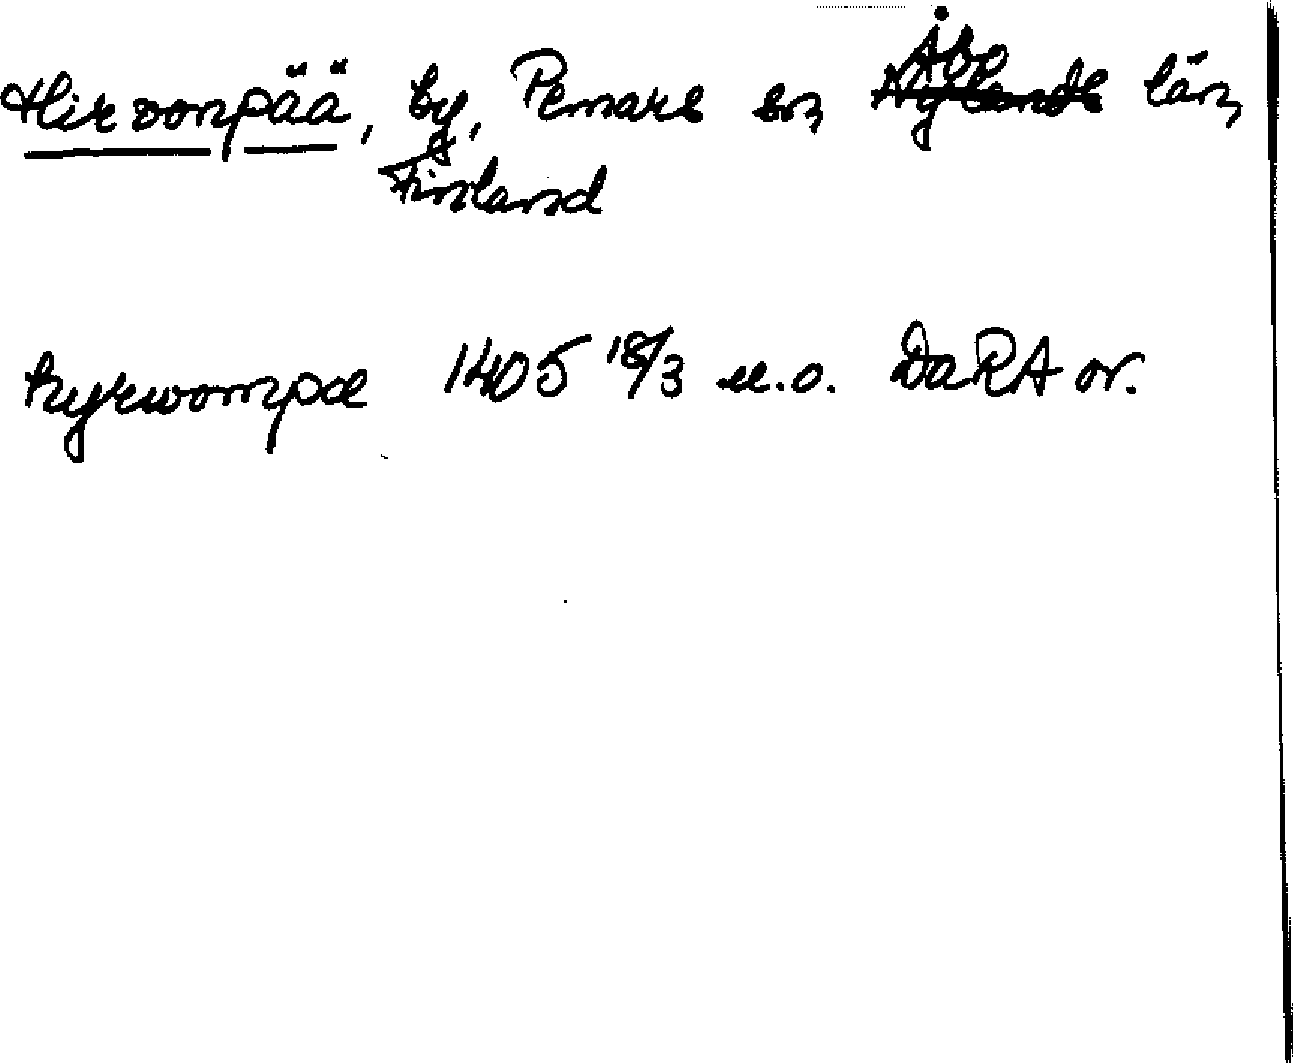 Hirvonpää, by, Pemars sn Åbo län,
Finland
hyrwompæ 1405 18/3 u.o. DaRA or.